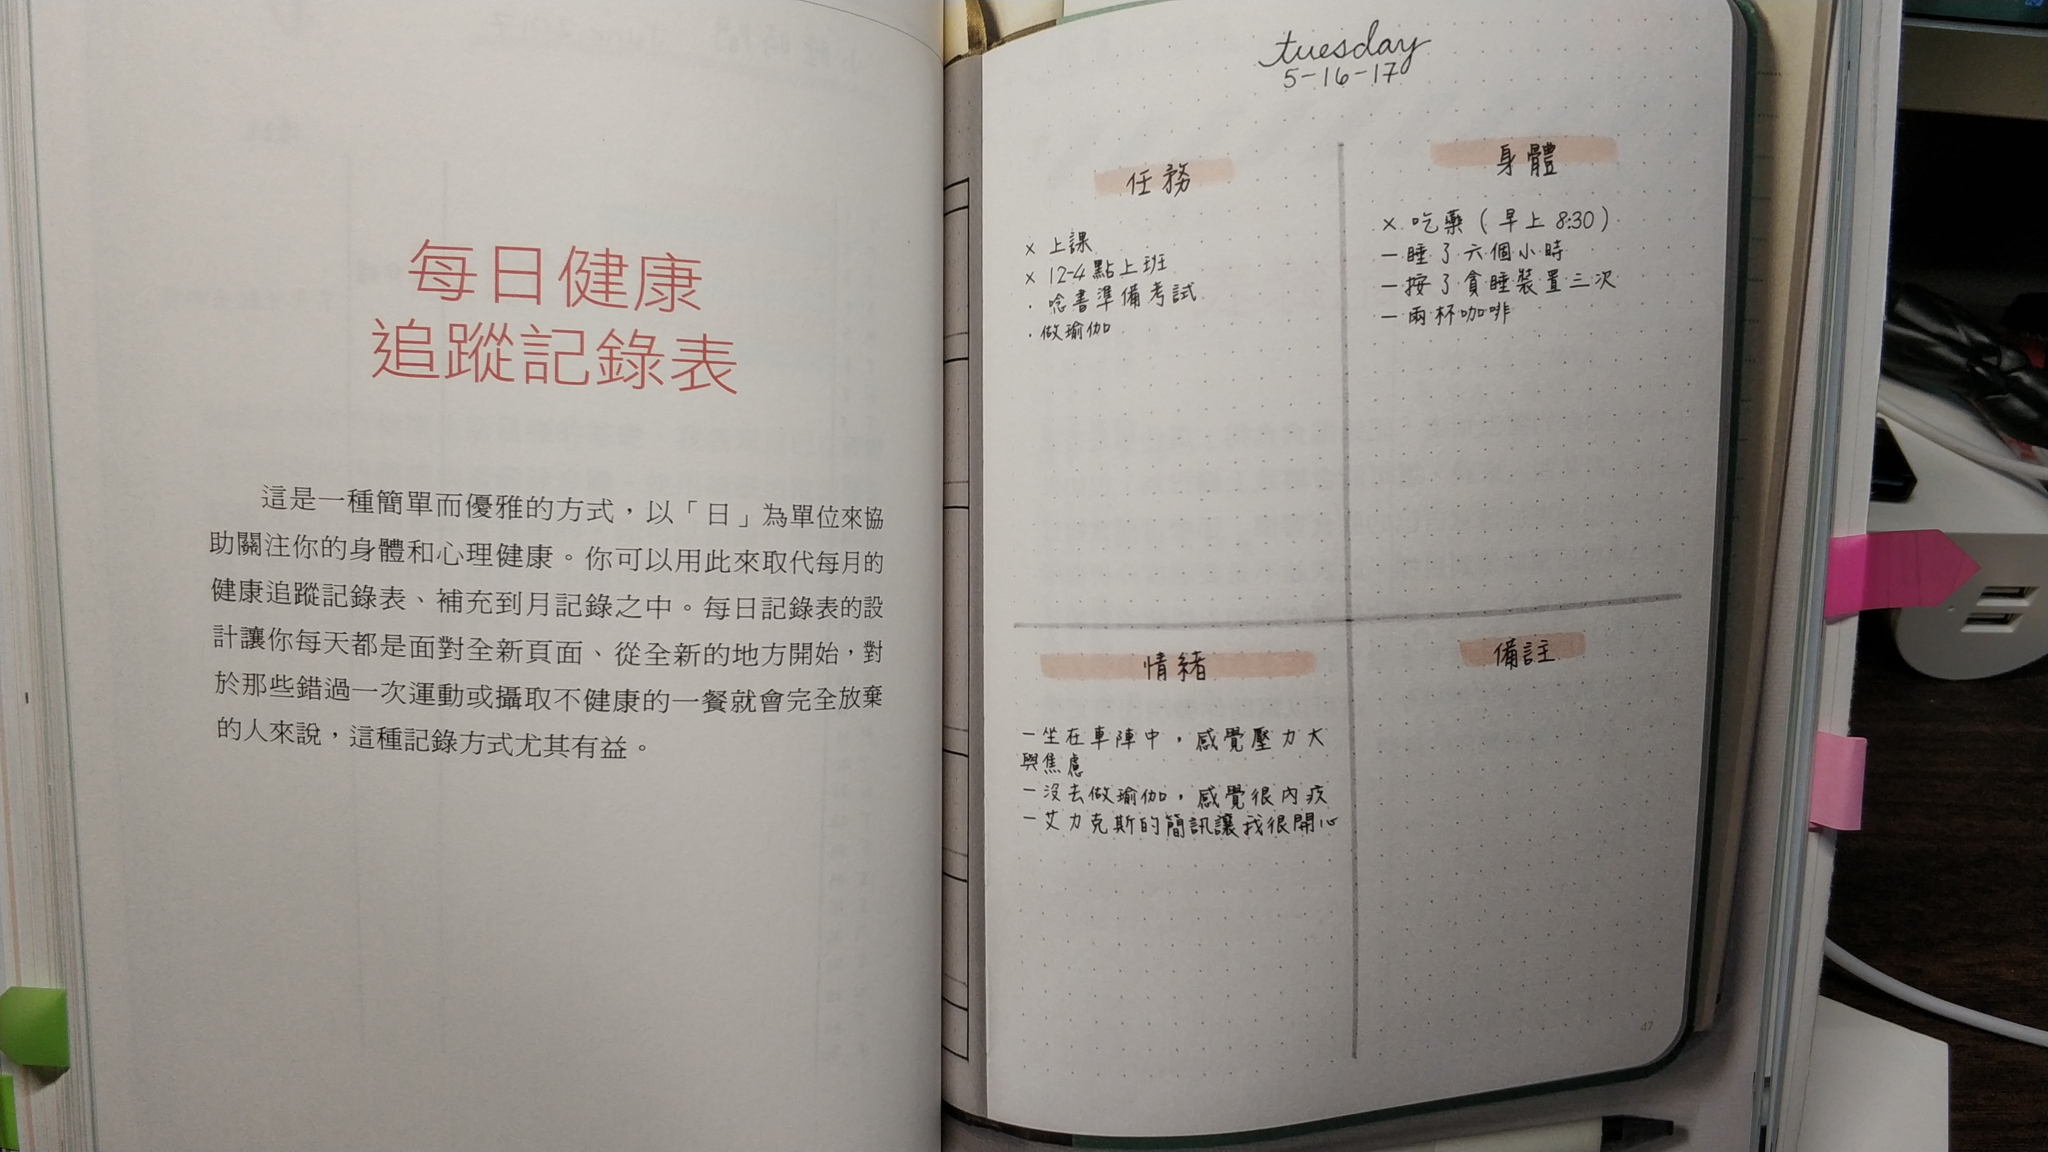 每日健康
追蹤記錄表
這是一種簡單而優雅的方式，以「日」為單位來協
助關注你的身體和心理健康。你可以用此來取代每月的
健康追蹤記錄表、補充到月記錄之中。每日記錄表的設
計讓你每天都是面對全新頁面、從全新的地方開始，對
於那些錯過一次運動或攝取不健康的一餐就會完全放棄
的人來說，這種記錄方式尤其有益。
tuesday
5-16-17
任務
× 上課
× 12-4點上班
· 唸書準備考試
· 做瑜伽
身體
× 吃藥（早上 8:30）
– 睡了六個小時
– 按了貪睡裝置三次
– 兩杯咖啡
情緒
– 坐在車陣中，感覺壓力大
與焦慮
– 沒去做瑜伽，感覺很內疚
– 艾力克斯的簡訊讓我很開心
備註
47